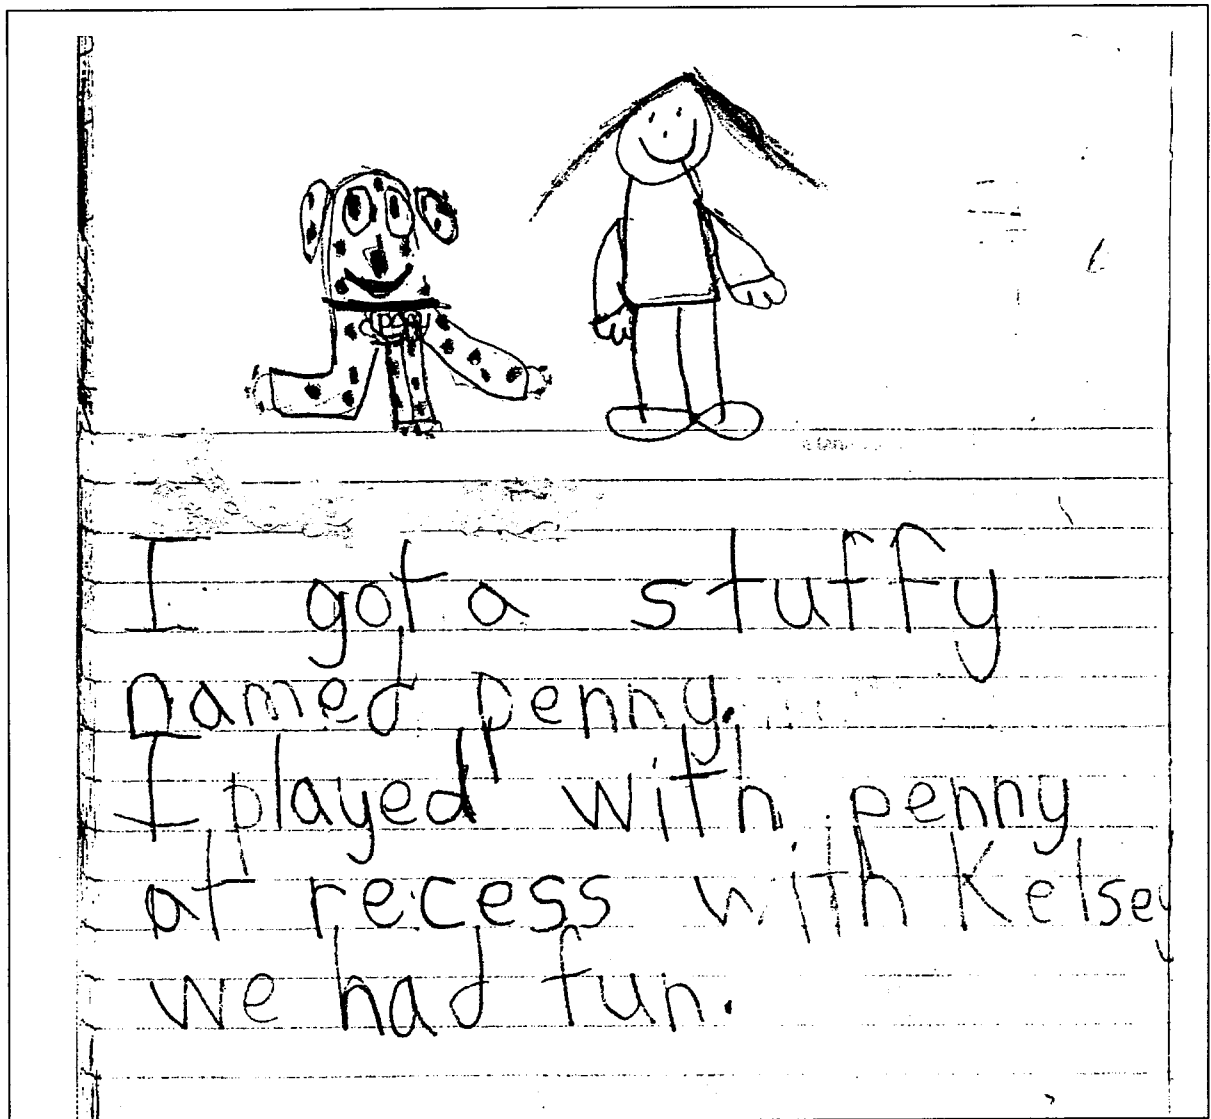 I got a stuffy
named penny.
I played with penny
at recess with Kelsey
we had fun.